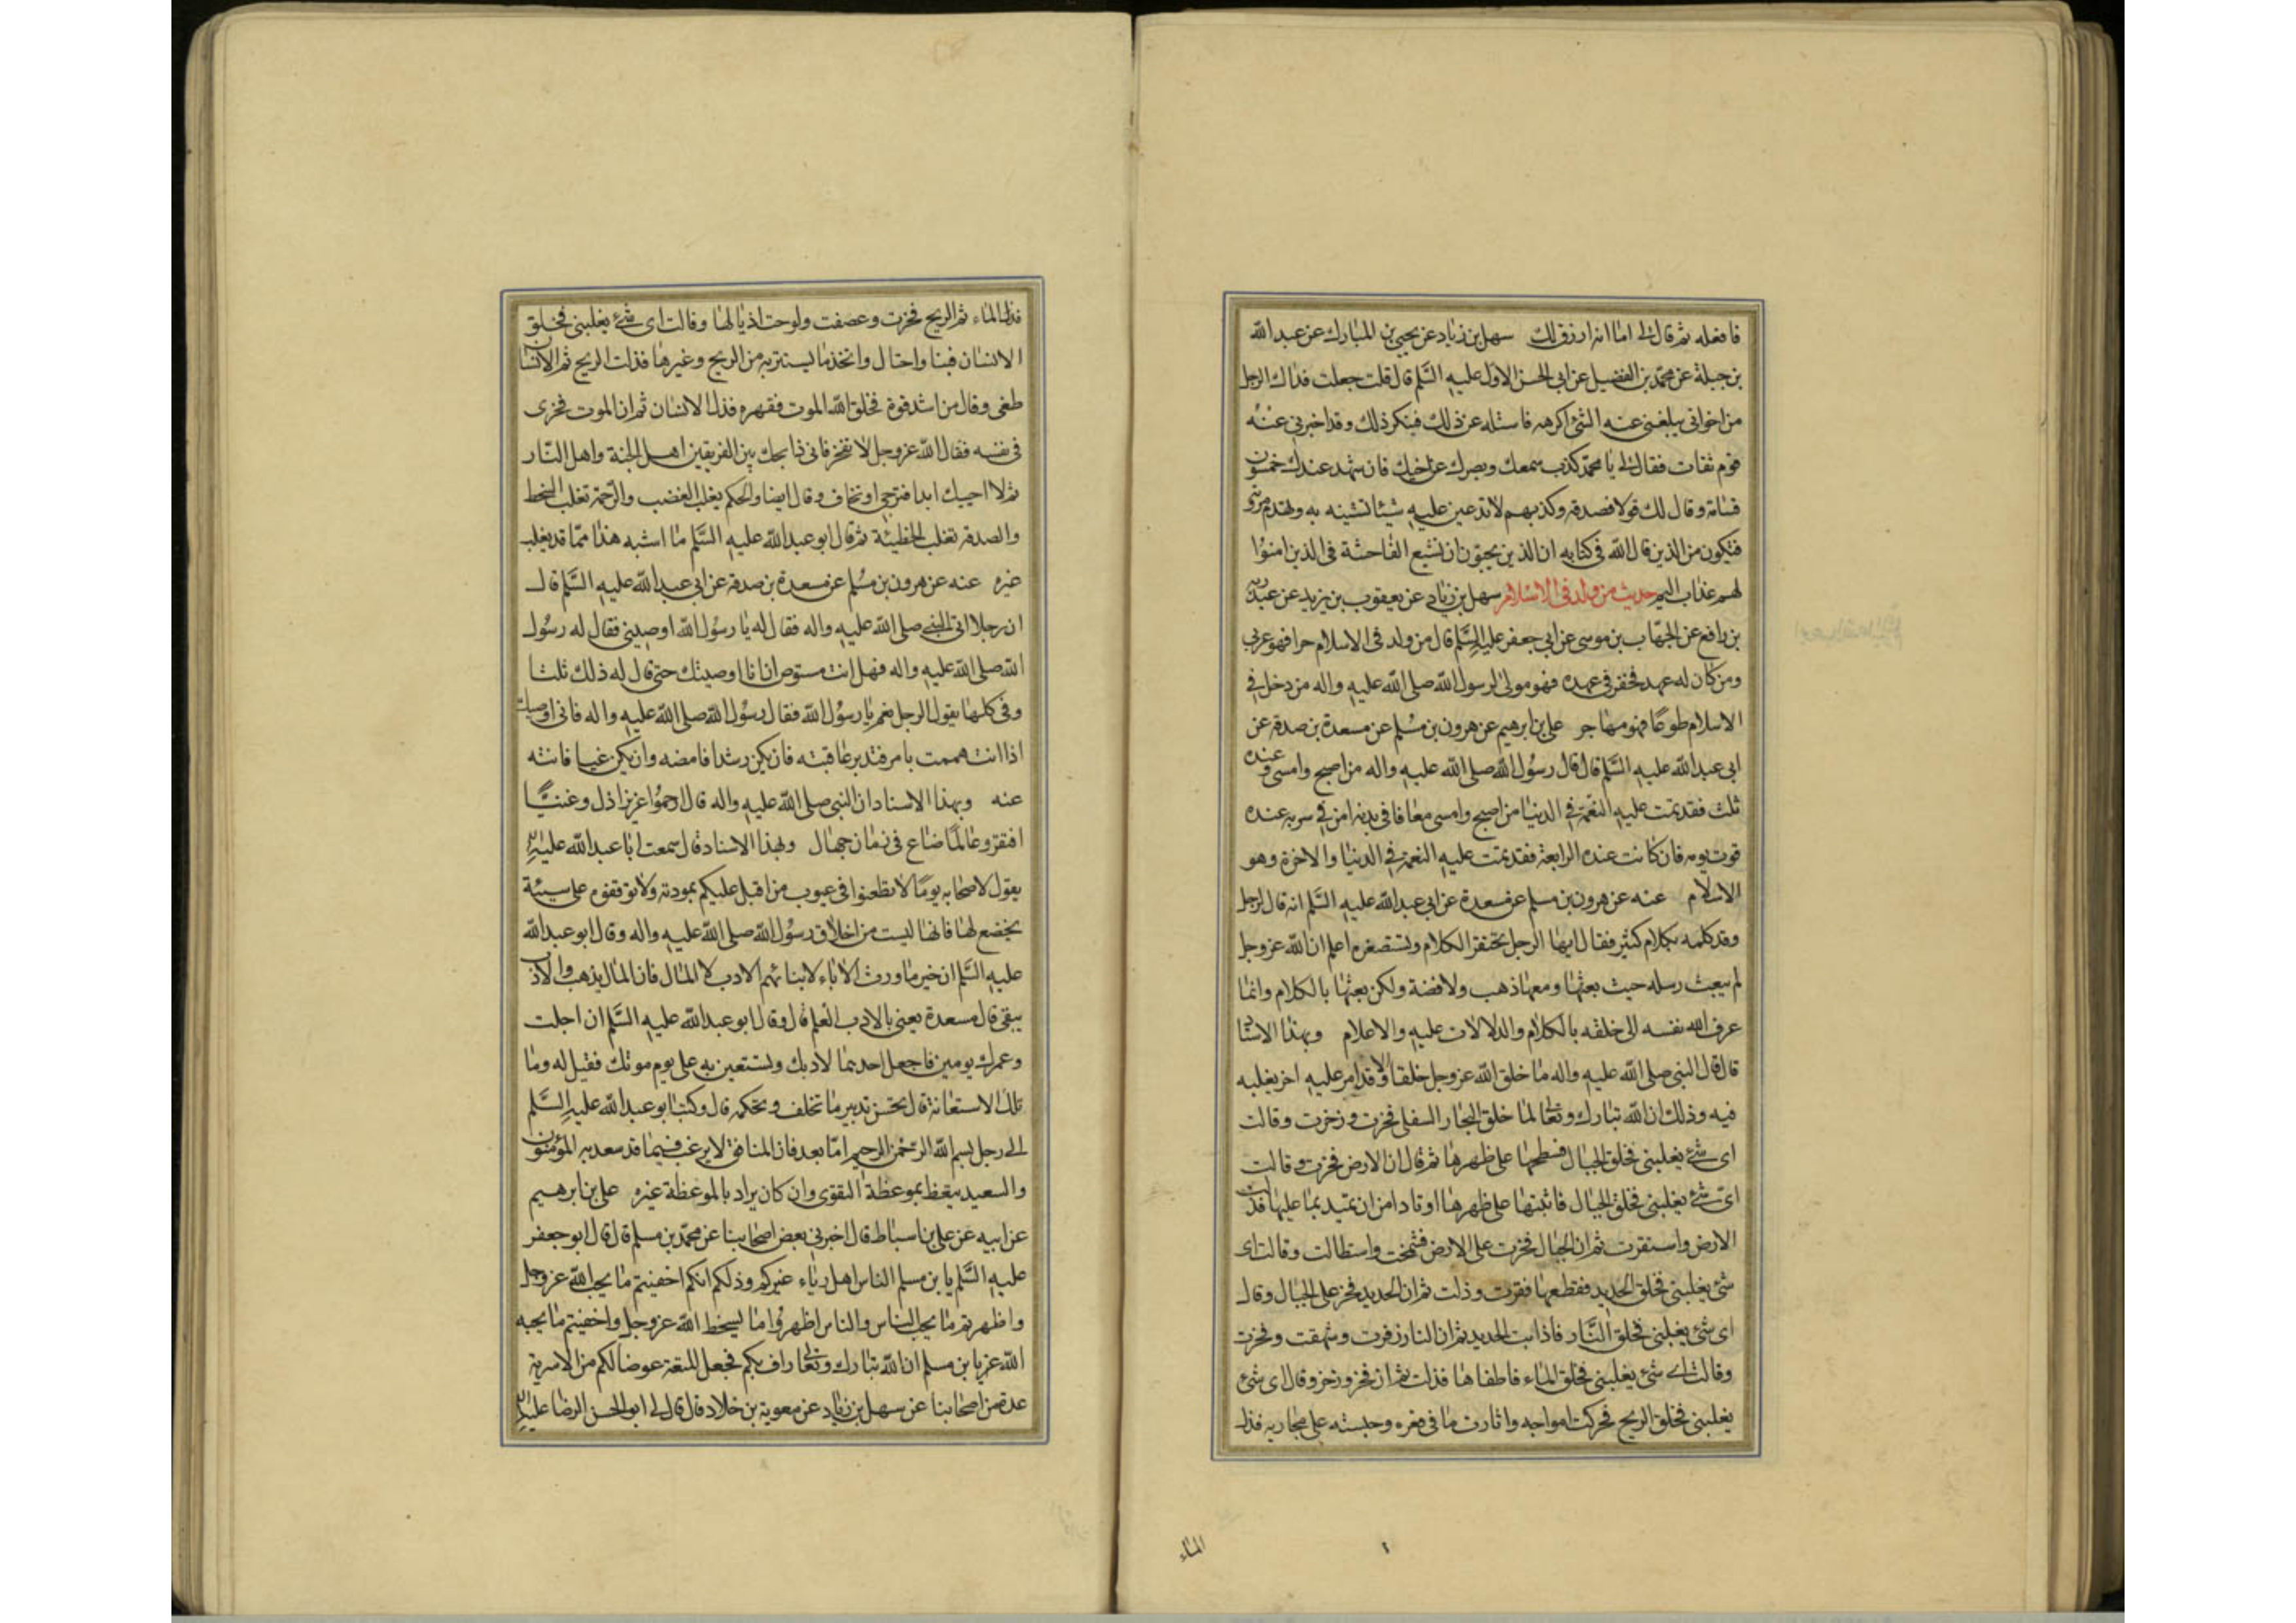 فافعله ثم قال لى اما انه ارزق لك سهل بن زياد عن يحيى بن المبارك عن عبد الله
بن جبلة عن محمد بن الفضيل عن ابى الحسن الاول عليه السلم قال قلت جعلت فداك الرجل
من اخوانى يبلغنى عنه الشئ اكرهه فاسئله عن ذلك فينكر ذلك وقد اخبرنى عنه
قوم ثقات فقال لى يا محمد كذب سمعك وبصرك عن اخيك فان شهد عندك خمسون
قسامة وقال لك قولا فصدقه وكذبهم لا تذيعن عليه شيئا تشينه به وتهدم مروته
فتكون من الذين قال الله فى كتابه ان الذين يحبون ان تشيع الفاحشة فى الذين امنوا
لهم عذاب اليم حديث من ولد فى الاسلام سهل بن زياد عن يعقوب بن يزيد عن عبد ربه
بن رافع عن الحباب بن موسى عن ابى جعفر عليه السلم قال من ولد فى الاسلام حرا فهو عربى
ومن كان له عهد فخفر فى عهده فهو مولى لرسول الله صلى الله عليه واله من دخل فى
الاسلام طوعا فهو مهاجر على بن ابرهيم عن هرون بن مسلم عن مسعدة بن صدقه عن
ابى عبد الله عليه السلم قال قال رسول الله صلى الله عليه واله من اصبح وامسى وعنده
ثلث فقد تمت عليه النعمة فى الدنيا من اصبح وامسى معافا فى بدنه امن فى سربه عنده
قوت يومه فان كانت عنده الرابعة فقد تمت عليه النعمة فى الدنيا والاخرة وهو
الاسلام عنه عن هرون بن مسلم عن مسعدة عن ابى عبد الله عليه السلم انه قال لرجل
وقد كلمه بكلام كثير فقال ايها الرجل تحتقر الكلام وتستصغره اعلم ان الله عز وجل
لم يبعث رسله حيث بعثها ومعها ذهب ولا فضة ولكن بعثها بالكلام وانما
عرف الله نفسه الى خلقه بالكلام والدلالات عليه والاعلام وبهذا الاسناد
قال قال النبى صلى الله عليه واله ما خلق الله عز وجل خلقا الا وقد امر عليه اخر يغلبه
فيه وذلك ان الله تبارك وتعالى لما خلق البحار السفلى فخرت وزخرت وقالت
اى شئ يغلبنى فخلق الجبال فسطحها على ظهرها ثم قال ان الارض فخرت وقالت
اى شئ يغلبنى فخلق الجبال فاثبتها على ظهرها اوتادا من ان تميد بما عليها فذلت
الارض واستقرت ثم ان الجبال فخرت على الارض فشمخت واستطالت وقالت اى
شئ يغلبنى فخلق الحديد فقطعها فقرت وذلت ثم ان الحديد فخر على الجبال وقال
اى شئ يغلبنى فخلق النار فاذابت الحديد ثم ان النار زفرت وشهقت وفخرت
وقالت اى شئ يغلبنى فخلق الماء فاطفاها فذلت ثم ان فخر وزخر وقال اى شئ
يغلبنى فخلق الريح فحركت امواجه واثارت ما فى قعره وحبسته على مجاريه فذل
الماء
فذل الماء ثم الريح فخرت وعصفت ولوحت اذيالها وقالت اى شئ يغلبنى فخلق
الانسان فبنا واحتال واتخذ ما يستتر به من الريح وغيرها فذلت الريح ثم الانسان
طغى وقال من اشد قوة فخلق الله الموت فقهره فذل الانسان ثم ان الموت فخر فى
فى نفسه فقال الله عز وجل لا تفخر فانى ذابحك بين الفريقين اهل الجنة واهل النار
ثم لا احييك ابدا فترجى او تخاف وقال ايضا والحكم يغلب الغضب والرحمة تغلب السخط
والصدقه تغلب الخطيئة ثم قال ابو عبد الله عليه السلم ما اشبه هذا مما قد يغلب
غيره عنه عن هرون بن مسلم عن مسعدة بن صدقه عن ابى عبد الله عليه السلم قال
ان رجلا اتى النبى صلى الله عليه واله فقال له يا رسول الله اوصينى فقال له رسول
الله صلى الله عليه واله فهل انت مستوص ان انا اوصيتك حتى قال له ذلك ثلثا
وفى كلها يقول الرجل نعم يا رسول الله فقال رسول الله صلى الله عليه واله فانى اوصيك
اذا انت هممت بامر فتدبر عاقبته فان يكن رشدا فامضه وان يكن غيا فانته
عنه وبهذا الاسناد ان النبى صلى الله عليه واله قال ارحموا عزيزا ذل وغنيا
افتقر وعالما ضاع فى زمان جهال وبهذا الاسناد قال سمعت ابا عبد الله عليه
يقول لاصحابه يوما لا تطعنوا فى عيوب من اقبل عليكم بمودته ولا توقفوه على سيئة
يخضع لها فانها ليست من اخلاق رسول الله صلى الله عليه واله وقال ابو عبد الله
عليه السلم ان خير ما ورث الاباء لابنائهم الادب لا المال فان المال يذهب والادب
يبقى قال مسعدة يعنى بالادب العلم قال وقال ابو عبد الله عليه السلم ان اجلت
وعمرك يومين فاجعل احدهما لادبك وتستعين به على يوم موتك فقيل له وما
تلك الاستعانة قال تحسن تدبير ما تخلف وتحكمه قال وكتب ابو عبد الله عليه السلم
الى رجل بسم الله الرحمن الرحيم اما بعد فان المنافق لا يرغب فيما قد سعد به المؤمنون
والسعيد يتعظ بموعظة التقوى وان كان يراد بالموعظة غيره على بن ابرهيم
عن ابيه عن على بن اسباط قال اخبرنى بعض اصحابنا عن محمد بن مسلم قال قال ابو جعفر
عليه السلم يا بن مسلم الناس اهل رياء غيركم وذلكم انكم اخفيتم ما يحب الله عز وجل
واظهرتم ما يحب الناس والناس اظهروا ما يسخط الله عز وجل واخفيتم ما يحبه
الله عز يا بن مسلم ان الله تبارك وتعالى راف بكم فجعل المتعة عوضا لكم من الاشربة
عدة من اصحابنا عن سهل بن زياد عن معوية بن خلاد قال قال لى ابو الحسن الرضا عليه